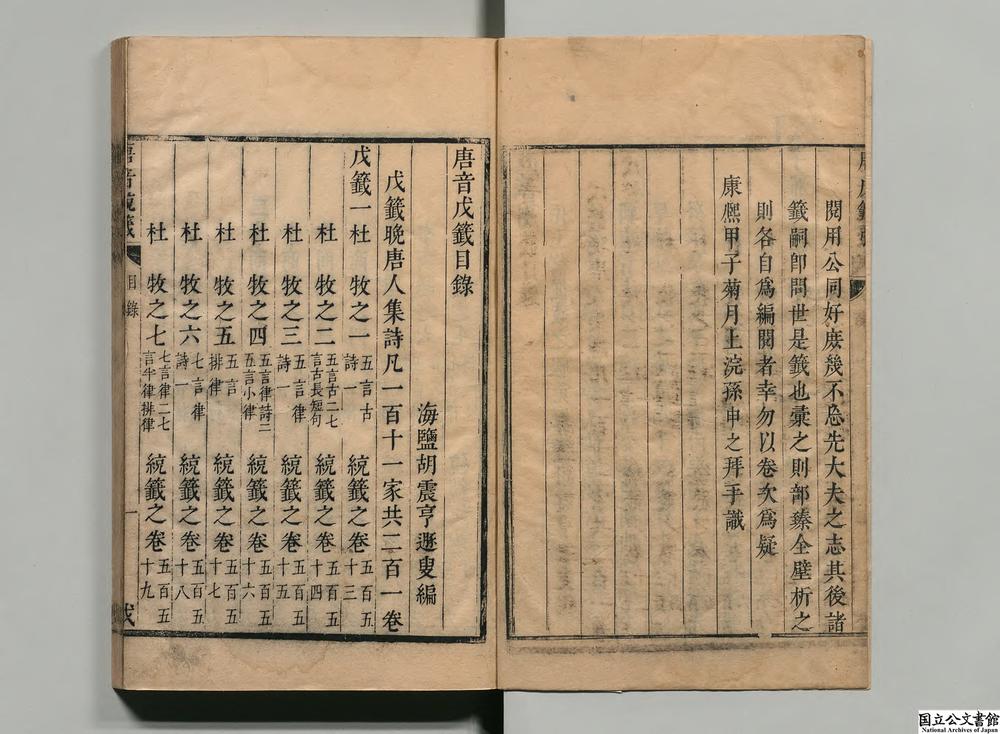 閱用公同好庶幾不忘先大夫之志其後諸
籤嗣卽問世是籤也彙之則部臻全壁析之
則各自爲編閱者幸勿以卷次爲疑
康熙甲子菊月上浣孫申之拜手識
唐音戊籤目錄
海鹽胡震亨遯叟編
戊籤晚唐人集詩凡一百十一家共二百一卷
戊籤一杜牧之一 五言古詩一 統籤之卷五百五十三
杜牧之二 五言古二七言古長短句 統籤之卷五百五十四
杜牧之三 五言律詩一 統籤之卷五百五十五
杜牧之四 五言律詩二五言小律 統籤之卷五百五十六
杜牧之五 五言排律 統籤之卷五百五十七
杜牧之六 七言律詩一 統籤之卷五百五十八
杜牧之七 七言律二七言半律排律 統籤之卷五百五十九
唐音戊籤
目錄
一
国立公文書館
National Archives of Japan